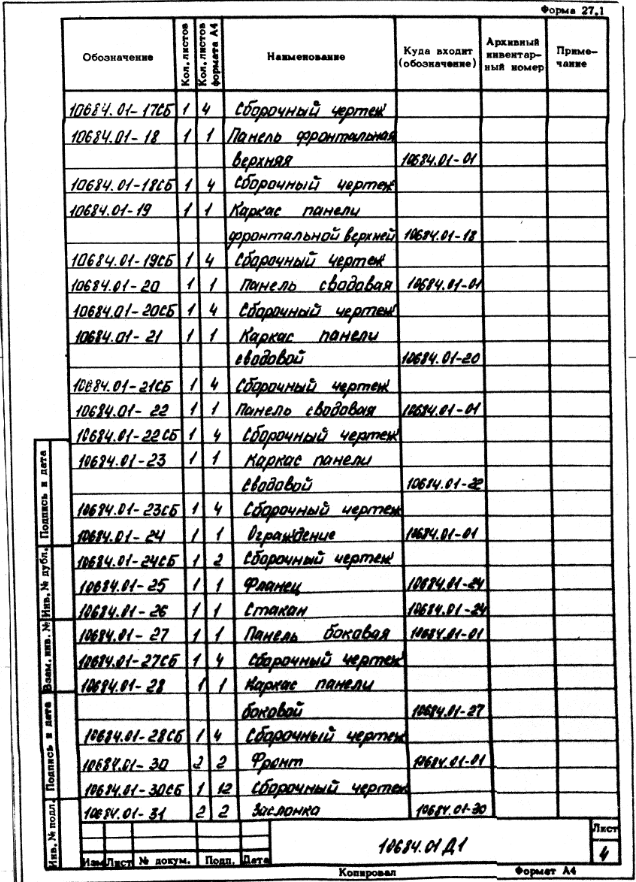 Форма 27.1
Обозначение Кол. листов Кол. листов формата А4 Наименование Куда входит (обозначение) Архивный инвентарный номер Примечание
10684.01-17СБ 1 4 Сборочный чертеж
10684.01-18 1 1 Панель фронтальная
верхняя 10684.01-01
10684.01-18СБ 1 4 Сборочный чертеж
10684.01-19 1 1 Каркас панели
фронтальной верхней 10684.01-18
10684.01-19СБ 1 4 Сборочный чертеж
10684.01-20 1 1 Панель сводовая 10684.01-01
10684.01-20СБ 1 4 Сборочный чертеж
10684.01-21 1 1 Каркас панели
сводовой 10684.01-20
10684.01-21СБ 1 4 Сборочный чертеж
10684.01-22 1 1 Панель сводовая 10684.01-01
10684.01-22СБ 1 4 Сборочный чертеж
10684.01-23 1 1 Каркас панели
сводовой 10684.01-22
10684.01-23СБ 1 4 Сборочный чертеж
10684.01-24 1 1 Ограждение 10684.01-01
10684.01-24СБ 1 2 Сборочный чертеж
10684.01-25 1 1 Фланец 10684.01-24
10684.01-26 1 1 Стакан 10684.01-24
10684.01-27 1 1 Панель боковая 10684.01-01
10684.01-27СБ 1 4 Сборочный чертеж
10684.01-28 1 1 Каркас панели
боковой 10684.01-27
10684.01-28СБ 1 4 Сборочный чертеж
10684.01-30 2 2 Фронт 10684.01-01
10684.01-30СБ 1 12 Сборочный чертеж
10684.01-31 2 2 Заслонка 10684.01-30
Подпись и дата
Инв. № дубл.
Взам. инв. №
Подпись и дата
Инв. № подл.
10684.01 Д1
Лист
4
Изм Лист № докум. Подп. Дата
Копировал Формат А4